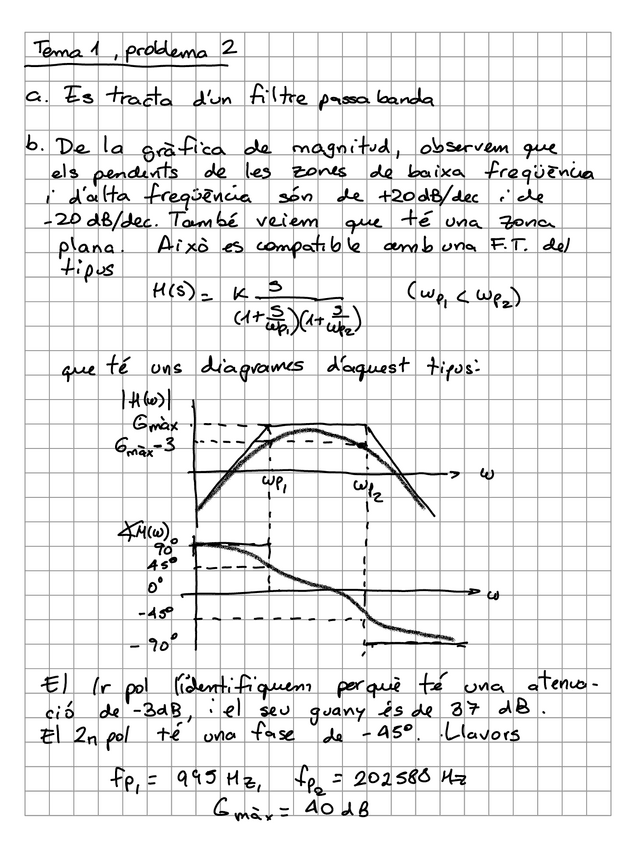 Tema 1, problema 2
a. Es tracta d'un filtre passa banda
b. De la gràfica de magnitud, observem que
els pendents de les zones de baixa freqüència
i d'alta freqüència són de +20dB/dec i de
-20 dB/dec. També veiem que té una zona
plana. Això es compatible amb una F.T. del
tipus
H(s) = K s / ((1+s/ωp₁)(1+s/ωp₂)) (ωp₁ < ωp₂)
que té uns diagrames d'aquest tipus:
|H(ω)|
Gmàx
Gmàx-3
ω
ωp₁ ωp₂
∡H(ω)
90°
45°
0°
ω
-45°
-90°
El 1r pol l'identifiquem perquè té una atenua-
ció de -3dB, i el seu guany és de 37 dB.
El 2n pol té una fase de -45°. Llavors
fp₁ = 995 Hz, fp₂ = 202588 Hz
Gmàx = 40 dB